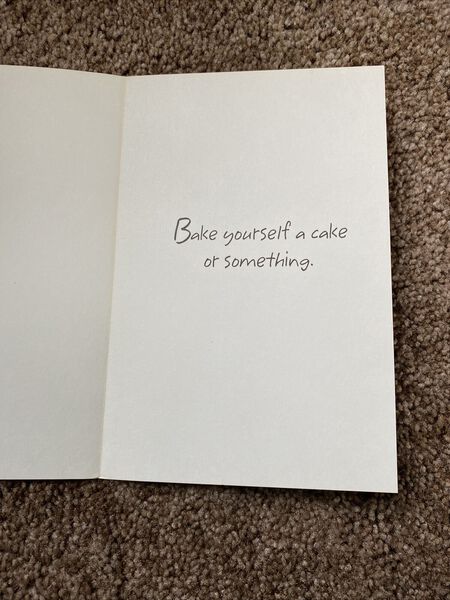 Bake yourself a cake
or something.